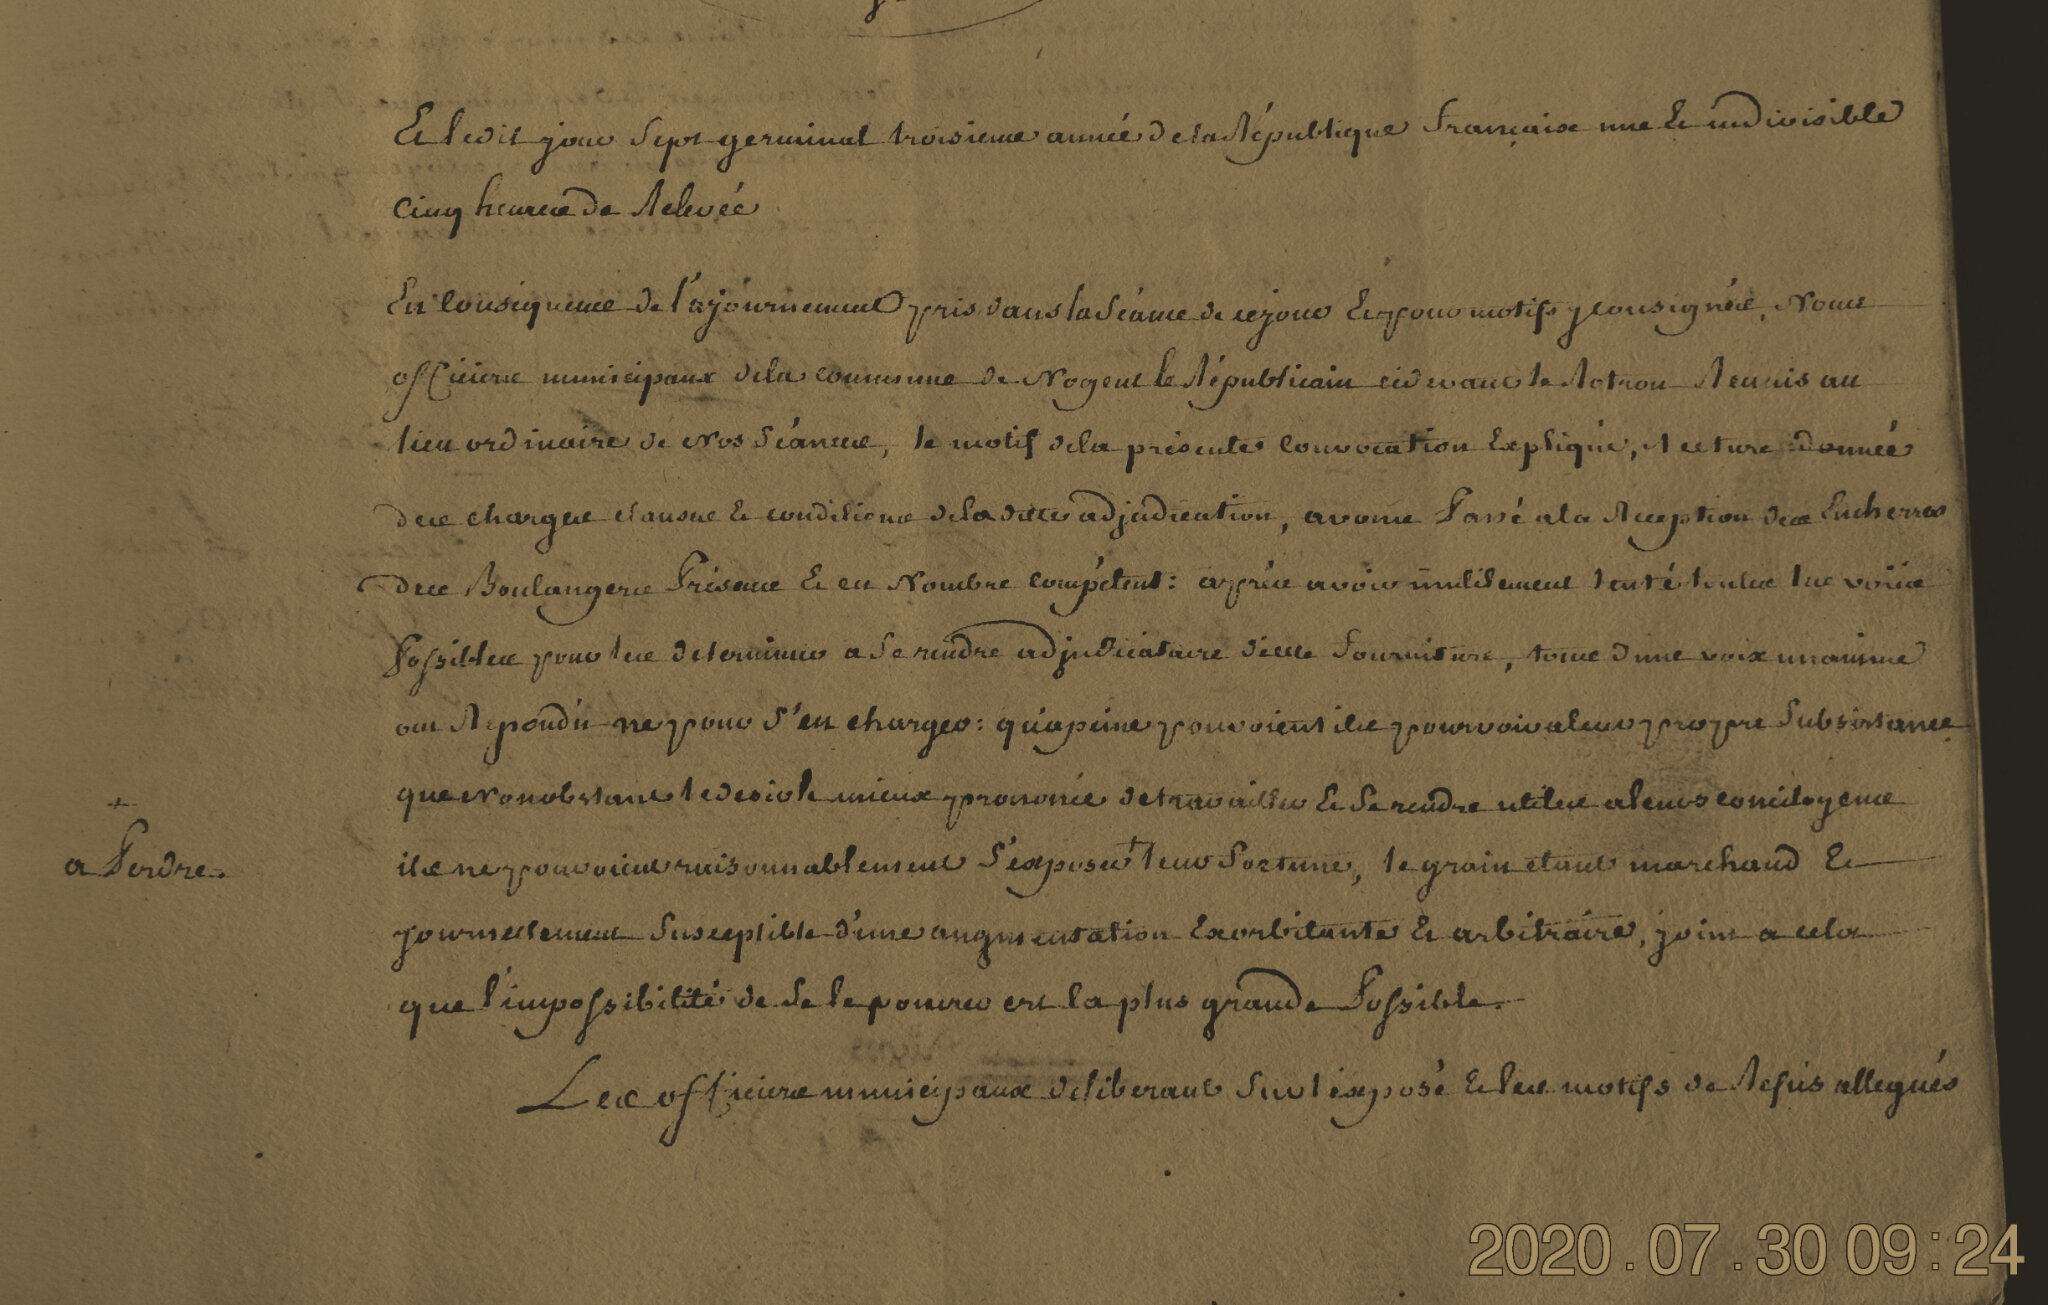 Et ledit jour Sept germinal troisieme année de la République française une et indivisible
cinq heures de Relevée
En Consequence de l'ajournement pris dans la Séance de cejour Et pour motifs y consignés, Nous
officiers municipaux dela commune de Nogent le Républicain cidevant le Rotrou Reunis au
lieu ordinaire de Nos Séances, le motif dela présente Convocation Expliqué, Lecture donnée
des charges clauses et conditions dela ditte adjudication, avons Passé ala Reception des Encheres
des Boulangers Présens Et en Nombre compétent : après avoir inutilement tenté toutes les voies
Possibles pour les determiner a Se rendre adjudicataire d'icelle fourniture, tous d'une voix unanime
ont Repondu ne pouv S'en charger : qu'apeine pouvoient ils pourvoir aleur propre Subsistance
que Nonobstant le desir le mieux prononcé de travailler Et Se rendre utiles aleurs concitoyens
ils ne pouvoient raisonnablement S'exposer + leur fortune, le grain etant marchand Et
+
a Perdre.
journellement Susceptible d'une augmentation Exorbitante Et arbitraire, joint a cela
que l'impossibilité de Se le procurer est la plus grande Possible.
Les officiers municipaux deliberant Sur l'exposé Et les motifs de Refus allegués
2020.07.30 09:24